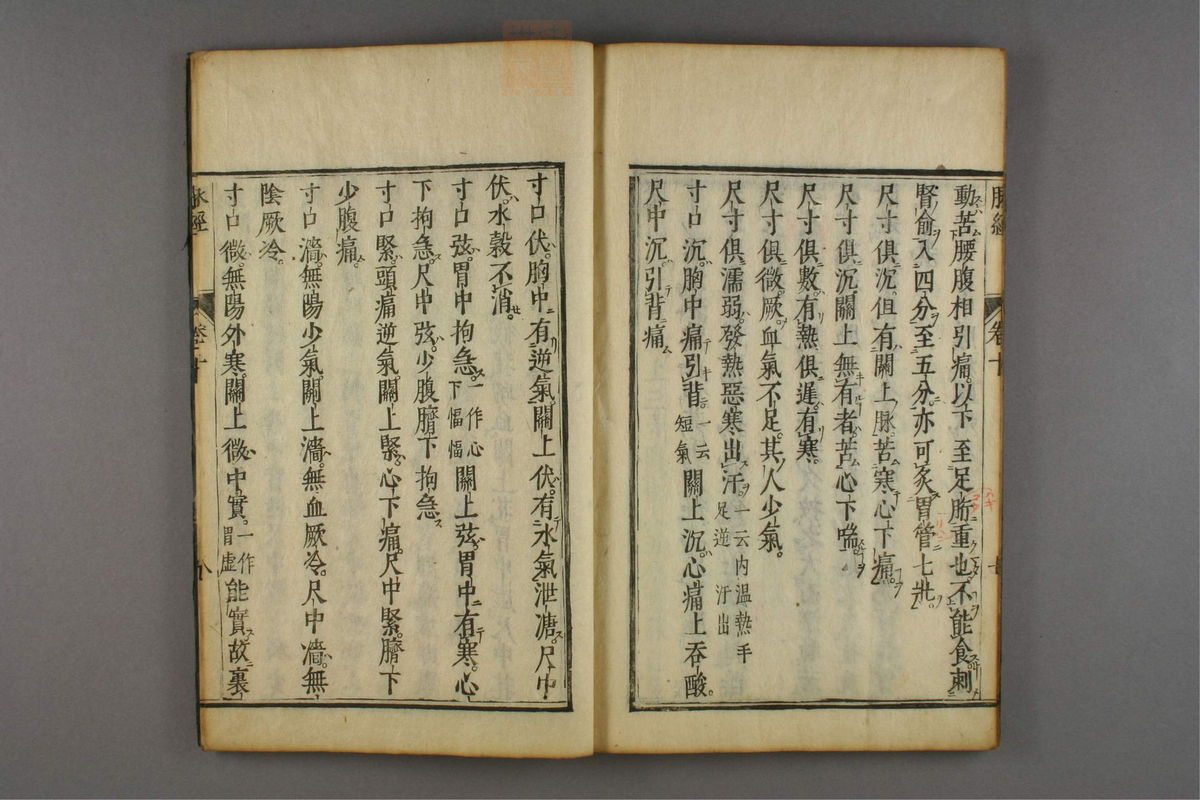 動苦腰腹相引痛以下至足胻重也不能食刺
腎俞入四分至五分亦可灸胃管七壯
尺寸俱沉但有關上脉苦寒心下痛
尺寸俱沉關上無有者苦心下喘
尺寸俱數有熱俱遲有寒
尺寸俱微厥血氣不足其人少氣
尺寸俱濡弱發熱惡寒出汗一云内温熱手足逆汗出
寸口沉胸中痛引背一云短氣關上沉心痛上吞酸
尺中沉引背痛
寸口伏胸中有逆氣關上伏有水氣泄溏尺中
伏水穀不消
寸口弦胃中拘急一作心下愊愊關上弦胃中有寒心
下拘急尺中弦少腹臍下拘急
寸口緊頭痛逆氣關上緊心下痛尺中緊臍下
少腹痛
寸口濇無陽少氣關上濇無血厥冷尺中濇無
陰厥冷
寸口微無陽外寒關上微中實一作胃虛能實故裏
脉經
卷十
八